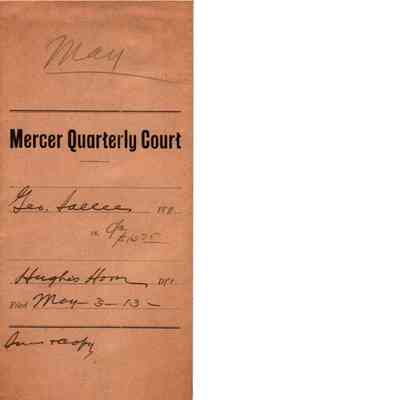 May
Mercer Quarterly Court
Geo. Sallee Plf.
Hughes Horn Def.
Filed May 3-13-
& Copy